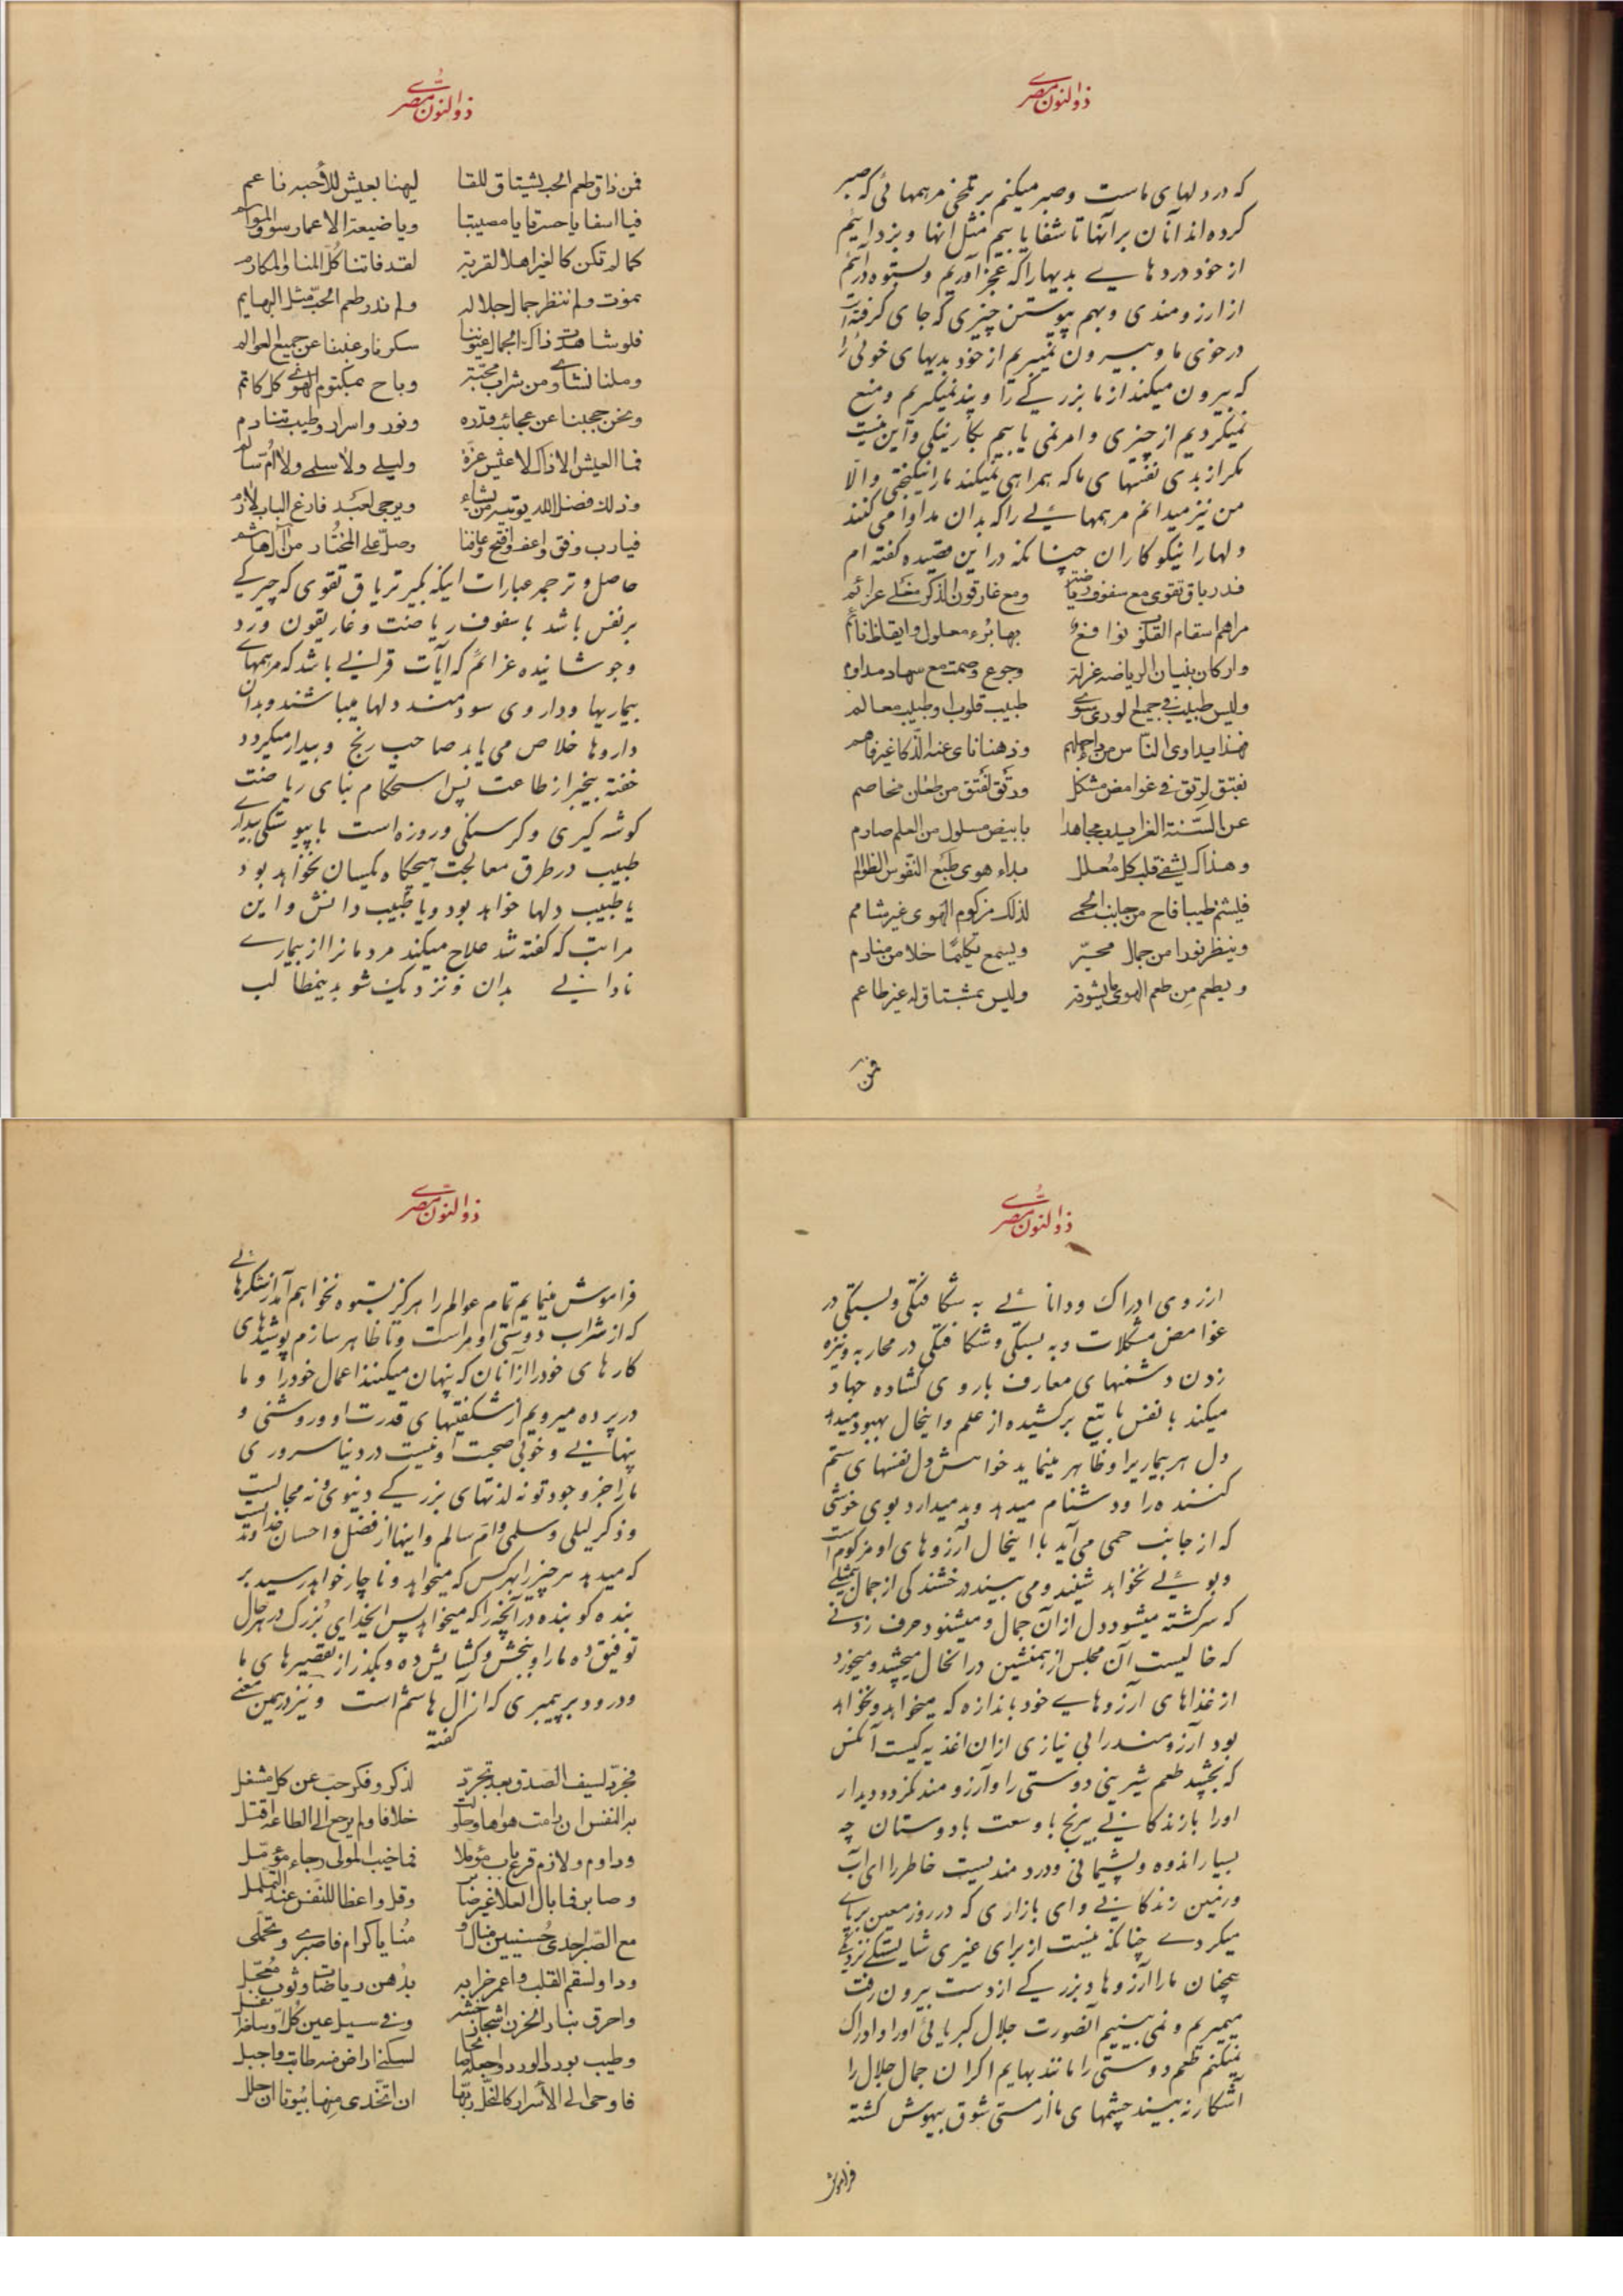 ذوالنون مصری
که در دلهای ماست وصبر میکنم بر تلخی مرهمهائی که صبر
کرده اند آنان بر آنها تا شفا یابیم مثل انها و بزدائیم
از خود دردهایی بدیها را که عجز آوریم وبستوه درائیم
از ارزومندی وبهم پیوستن چیزی که جای گرفته است
در خوی ما وبیرون نمیبریم از خود بدیهای خوئی را
که بیرون میکند از ما بزرگی را وپند نمیگیریم ومنع
نمیگردیم از چیزی وامر نمی یابیم بکار نیکی واین نیست
مگر از بدی نفسهای ما که همراهی نمیکند ما را نیکبختی والا
من نیز میدانم مرهمهائی را که بدان مداوا می کنند
دلها را نیکوکاران چنانکه در این قصیده گفته ام
فدریاق تقوی مع سفوف ریاضت ومع غاریقون الذکر مغلی عزائم
مراهم اسقام القلوب نوافع بها برء معلول وایقاظ نائم
وارکان بنیان الریاضه عزلة وجوع وصمت مع سهاد مداوم
ولیس طبیب فی جمیع الوری سوی طبیب قلوب او طبیب معالم
فهذا یداوی الناس من داء جهلهم وذهنا نای عنه الذکا غیر فاهم
بفتق لرتق فی غوامض مشکل ورتق لفتق من طعان مخاصم
عن السنة الغرا یذب مجاهدا بابیض مسلول من العلم صارم
وهذاک یشفی قلب کل معلل بداء هوی طبع النفوس الظوالم
فلیشم طیبا فاح من جانب الحمی لذلک مزکوم الهوی غیر شامم
وینظر نورا من جمال محیر ویسمع تکلیما خلا من منادم
ویطعم من طعم الهوی ما یشوقه ولیس بمشتاق له غیر طاعم
فمن
ذوالنون مصری
فمن ذاق طعم الحب یشتاق للقا لیهنا بعیش للأحبه ناعم
فیا اسفا یا حسرتا یا مصیبتا ویا ضیعة الاعمار سوق المواسم
کما لم تکن کالغیر اهلا لقربة لقد فاتنا کل المنا والمکارم
نموت ولم ننظر جمال جلاله ولم ندر طعم الحب مثل البهایم
فلو شاهدت ذاک الجمال عیوننا سکرنا وغبنا عن جمیع العوالم
وملنا نشاوی من شراب محبة وباح بمکتوم الهوی کل کاتم
ونحن حجبنا عن عجائب قدره ونور واسرار وطیب تنادم
فما العیش الا ذاک لا عیش عزة ولیلی ولا سلمی ولا ام سالم
وذلک فضل الله یوتیه من یشاء ویرجی لعبد قارع الباب لازم
فیا رب وفق واعف وافتح وعافنا وصل علی المختار من آل هاشم
حاصل وترجمه عبارات اینکه بگیر تریاق تقوی که چیرگی
بر نفس باشد با سفوف ریاضت وغاریقون ورد
وجوشانیده عزائم که آیات قرانی باشد که مرهمهای
بیماریها وداروی سودمند دلها میباشند وبدان
داروها خلاص می یابد صاحب رنج وبیدار میگردد
خفته بیخبر از طاعت پس استحکام بنای ریاضت
گوشه گیری وگرسنگی وروزه است با پیوستگی بیداری
طبیب در طرق معالجت هیچگاه یکسان نخواهد بود
یا طبیب دلها خواهد بود ویا طبیب دانش واین
مراتب که گفته شد علاج میکند مردمانرا از بیماری
نادانی بدان ونزدیک شو بدینمطالب
ذوالنون مصری
از روی ادراک ودانائی به شکافتگی وبستگی در
غوامض مشکلات وبه بستگی وشکافتگی در محاربه ونیزه
زدن دشمنهای معارف با روی گشاده جهاد
میکند با نفس با تیغ برکشیده از علم واینحال بهبود میدهد
دل هر بیماریرا وظاهر مینماید خواهش دل نفسهای ستم
کننده را ودشنام میدهد وبد میدارد بوی خوشی
که از جانب حمی می آید با اینحال آرزوهای او مزکوم است
وبوئی نخواهد شنید ومی بیند درخشندگی از جمال
که سرگشته میشود دل از آن جمال ومیشنود حرف زدنی
که خالیست آن مجلس از همنشین در انحال میچشد ومیخورد
از غذاهای آرزوهایی خود باندازه که میخواهد ونخواهد
بود آرزومند را بی نیازی از ان اغذیه کیست آنکس
که بچشید طعم شیرینی دوستی را وآرزومند نگردد ودیدار
اورا با زندگانی بیرنج با وسعت با دوستان چه
بسیار اندوه وپشیمانی ودرد مندیست خاطر را ای آب
ورنمین زندگانی وای بازاری که در روز معین برپای
میکردی چنانکه نیست از برای غیری شایستگی نزدیکی
همچنان ما را آرزوها وبزرگی از دست بیرون رفت
میمیریم ونمی بینیم آنصورت جلال کبریائی اورا وادراک
نمیکنم طعم دوستی را مانند بهایم اگر ان جمال جلال را
آشکار نه بیند چشمهای ما از مستی شوق بیهوش گشته
فراموش
ذوالنون مصری
فراموش مینمایم تمام عوالم را هرگز بستوه نخواهم آمد از شکرهائی
که از شراب دوستی او مراست وناظاهر سازم پوشیدهای
کارهای خود را از انان که پنهان میکنند اعمال خود را وما
در پرده میرویم از شگفتیهای قدرت او وروشنی و
پنهانی وخوبی صحبت او نیست در دنیا سروری
ما را جز وجود تو نه لذتهای بزرگی دنیوی ونه مجالست
وذکر لیلی وسلمی وام سالم واینها از فضل واحسان خداوند است
که میدهد هر چیز را بهر کس که میخواهد وناچار خواهد رسید بر
بنده کو بنده در آنچه را که میخواهد پس ایخدای بزرگ در هر حال
توفیق ده ما را وببخش وگشایش ده وبگذر از تقصیرهای ما
ودرود بر پیمبری که از آل هاشم است ونیز در همین معنی
گفته
فجرد لسیف الصدق بعد تجرد لذکر وفکر حب عن کل مشغل
به النفس ان دامت هواها وحاولت خلافا ولم یرجع الی الطاعه اقتل
وداوم ولازم قرع باب مؤملا فما خیب المولی رجاء مؤمل
وصابر فما بال العلا غیر صابر وقل واعظا للنفس عند التململ
مع الصبر احدی حسنیین منال منایا کرام فاصبری وتحملی
وداو لسقم القلب واعمر خرابه بدهن ریاضات وثوب معجل
واحرق بنار الحزن اشجار وفی سیل عین کل اوساخه
وطیب بورد الورد واجعله لسکنی اراض طابت واجبل
فاوحی الی الأسرار کالنحل ربها ان اتخذی منها بیوتا